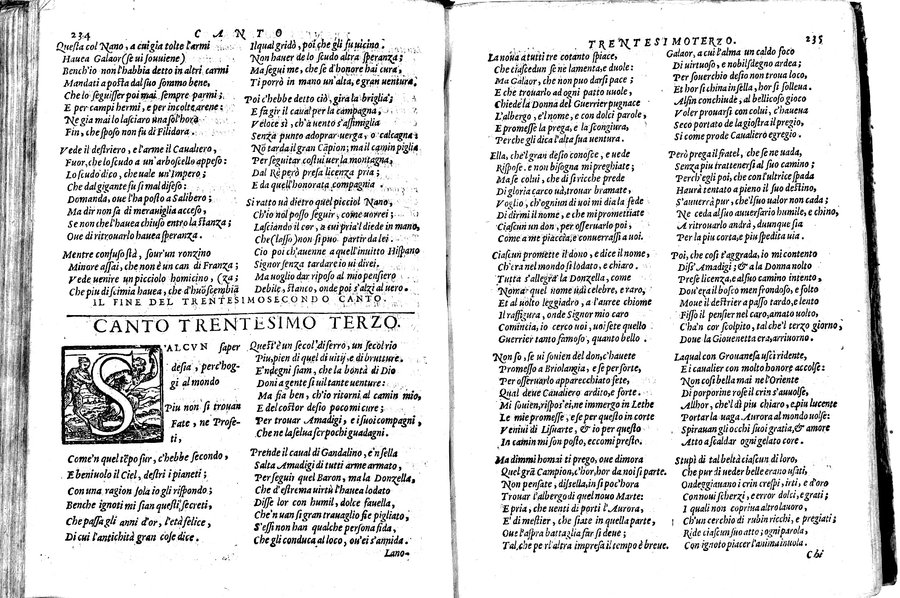 234
CANTO
Questa col Nano, a cui gia tolte l'armi
Hauea Galaor (se ui souuiene)
Bench'io non l'habbia detto in altri carmi
Mandati a posta dal suo sommo bene,
Che lo seguisser poi mai sempre parmi;
E per campi hermi, e per incolte arene:
Ne gia mai lo lasciaro una sol'hora
Fin, che sposo non fu di Filidora.
Vede il destriero, e l'arme il Caualiero,
Fuor, che lo scudo a un'arboscello appeso:
Lo scudo dico, che uale un'Impero;
Che dal gigante fu si mal difeso:
Domanda, oue l'ha posto a Salibero;
Ma dir non sa di merauiglia acceso,
Se non che l'hauea chiuso entro la stanza;
Oue di ritrouarlo hauea speranza.
Mentre confuso stà, sour'un ronzino
Minore assai, che non è un can di Franza;
Vede uenire un picciolo homicino,
Che piu di scimia hauea, che d'huõ sembianza
Il qual gridò, poi che gli fu uicino.
Non hauer de lo scudo altra speranza;
Ma segui me, che se d'honore hai cura,
Ti porrò in mano un'alta, e gran uentura.
Poi c'hebbe detto ciò, gira la briglia;
E fa gir il caual per la campagna,
Veloce sì, ch'a uento s'assimiglia
Senza punto adoprar uerga, o calcagna:
Nõ tarda il gran Cãpion; ma il camin piglia
Per seguitar costui uer la montagna,
Dal Re però presa licenza pria;
E da quell'honorata compagnia
Si ratto uà dietro quel picciol Nano,
Ch'io nol posso seguir, come uorrei;
Lasciando il cor, a cui pria'l diede in mano,
Che (lasso) non si puo partir da lei.
Cio poi ch'auenne a quell'inuitto Hispano
Signor senza tardare io ui direi.
Ma uoglio dar riposo al mio pensiero
Debile, stanco, onde poi s'alzi al uero.
IL FINE DEL TRENTESIMOSECONDO CANTO.
CANTO TRENTESIMO TERZO.
S'ALCVN saper
desia, perc'hog-
gi al mondo
Piu non si trouan
Fate, ne Profe-
ti,
Come'n quel tẽpo fur, c'hebbe secondo,
E beniuolo il Ciel, destri i pianeti;
Con una ragion sola io gli rispondo;
Benche ignoti mi sian questi secreti,
Che passa gli anni d'or, l'età felice,
Di cui l'antichità gran cose dice.
Quest'è un secol di ferro, un secol rio
Piu, pien di quel di uitij, e di brutture.
E'ndegni siam, che la bontà di Dio
Doni a gente si uil tante uenture:
Ma fia ben, ch'io ritorni al camin mio,
E del costor desio poco mi cure;
Per trouar Amadigi, e i suoi compagni,
Che ne la selua fer pochi guadagni.
Prende il caual di Gandalino, e'n sella
Salta Amadigi di tutti arme armato,
Per seguir quel Baron, ma la Donzella,
Che d'estrema uirtù l'hauea lodato
Disse lor con humil, dolce fauella,
Che'n uan si gran trauaglio fie pigliato,
S'essi non han qualche persona fida,
Che gli conduca al loco, ou'ei s'annida.
Lano-
TRENTESIMOTERZO.
235
La noua a tutti tre cotanto spiace,
Che ciascedun se ne lamenta, e duole:
Ma Galaor, che non puo darsi pace;
E che trouarlo ad ogni patto uuole,
Chiede la Donna del Guerrier pugnace
L'albergo, e'l nome, e con dolci parole,
E promesse la prega, e la scongiura,
Perche gli dica l'alta sua uentura.
Ella, che'l gran desio conosce, e uede
Rispose. e non bisogna mi preghiate;
Ma se colui, che di seruirce prede
Di gloria carco uà, trouar bramate,
Voglio, ch'ognun di uoi mi dia la fede
Di dirmi il nome, e che mi promettiate
Ciascun un don, per osseruarlo poi,
Come a me piaccia, e conuerrassi a uoi.
Ciascun promette il dono, e dice il nome,
Ch'era nel mondo sì lodato, e chiaro.
Tutta s'allegra la Donzella, come
Nomar quel nome udì celebre, e raro,
Et al uolto leggiadro, a l'auree chiome
Il raffigura, onde Signor mio caro
Comincia, io cerco uoi, uoi sete quello
Guerrier tanto famoso, quanto bello.
Non so, se ui souien del don, c'hauete
Promesso a Briolangia, e se per forte,
Per osseruarlo apparecchiato sete,
Qual deue Caualiero ardito, e forte.
Mi souien, rispos'ei, ne immergo in Lethe
Le mie promesse, e se per questo in corte
Venni di Lisuarte, & io per questo
In camin mi son posto, eccomi presto.
Ma dimmi homai ti prego, oue dimora
Quel grã Campion, c'hor, hor da noi si parte.
Non pensate, diss'ella, in sì poc'hora
Trouar l'albergo di quel nouo Marte:
E pria, che uenti di porti l'Aurora,
E' di mestier, che siate in quella parte,
Oue l'aspra battaglia far si deue;
Tal, che per l'altra impresa il tempo è breue.
Galaor, a cui l'alma un caldo foco
Di uirtuoso, e nobil sdegno ardea;
Per souerchio desio non troua loco,
Et hor si china in sella, hor si solleua.
Alfin conchiude, al bellicoso gioco
Voler prouarsi con colui, c'haueua
Seco portato de la giostra il pregio,
Si come prode Caualiero egregio.
Però prega il fratel, che se ne uada,
Senza piu trattenersi al suo camino;
Perch'egli poi, che con l'ultrice spada
Haurà tentato a pieno il suo destino,
S'auuerrà pur, che'l suo ualor non cada;
Ne ceda al suo auuersario humile, e chino,
A ritrouarlo andrà, dounque sia
Per la piu corta, e piu spedita uia.
Poi, che cosi t'aggrada, io mi contento
Diss'Amadigi; & a la Donna uolto
Prese licenza, e al suo camino intento,
Dou'era il bosco men frondoso, e folto
Moue il destrier a passo tardo, e lento
Fisso il pensier nel caro, amato uolto,
C'ha'n cor scolpito, tal che'l terzo giorno,
Doue la Giouenetta era, arriuorno.
La qual con Grouanesa uscì ridente,
E i caualier con molto honore accolse:
Non così bella mai ne l'Oriente
Di porporine rose il crin s'auuolse,
Allhor, che'l dì piu chiaro, e piu lucente
Portar la uaga Aurora al mondo uolse:
Spirauan gli occhi suoi gratia, & amore
Atto a scaldar ogni gelato core.
Stupì di tal beltà ciascun di loro,
Che pur di ueder belle erano usati,
Ondeggiauano i crin crespi, irti, e d'oro
Con noui scherzi, e error dolci, e grati;
I quali non copriua altro lauoro,
Ch'un cerchio di rubin ricchi, e pregiati;
Ride ciascun suo atto; ogni parola,
Con ignoto piacer l'anima inuola.
Chi